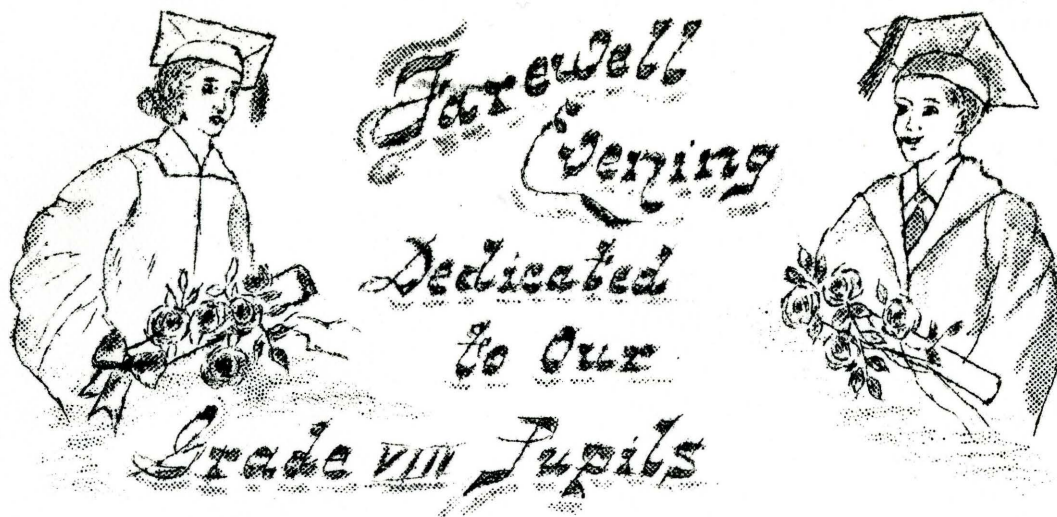 Farewell
Evening
Dedicated
to Our
Grade VIII Pupils